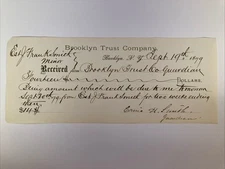 Brooklyn Trust Company.
Est of Frank Smith
Minor
Brooklyn, N.Y. Sept 19th 1899
Received from Brooklyn Trust Co. Guardian
Fourteen Dollars
Being amount which will be due to me
Sept 20 from Est of Frank Smith for two weeks ending
then
$14
Smith